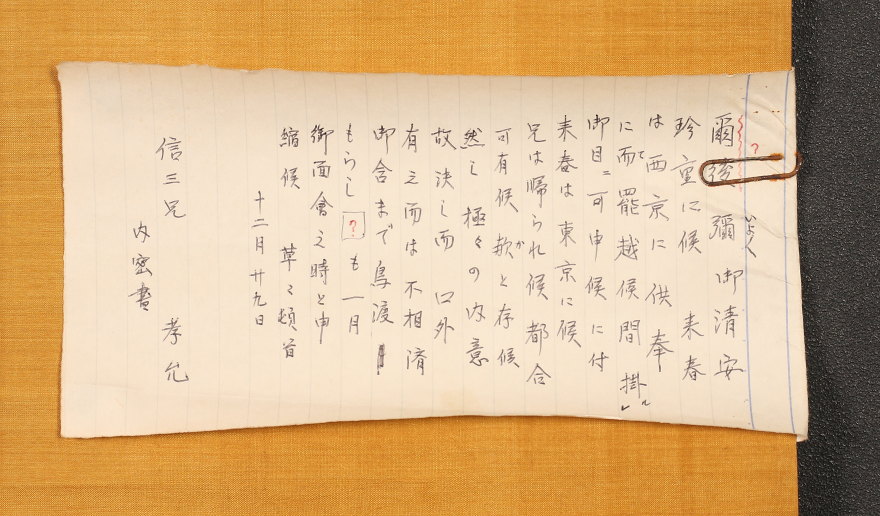 爾後彌御清安
いよ〳〵
?
珍重に候 来春
は西京に供奉
に而罷越候間 掛
て
レ
ル
御目ニ可申候 に付
来春は東京に候
兄は帰られ候都合
可有候歟と存候
か
然し極々の内意
故決し而 口外
有之而は不相済
御含まで鳥渡
もらし ? も一月
御面會之時と申
縮候 草々頓首
十二月廿九日
信三兄 孝允
内密書